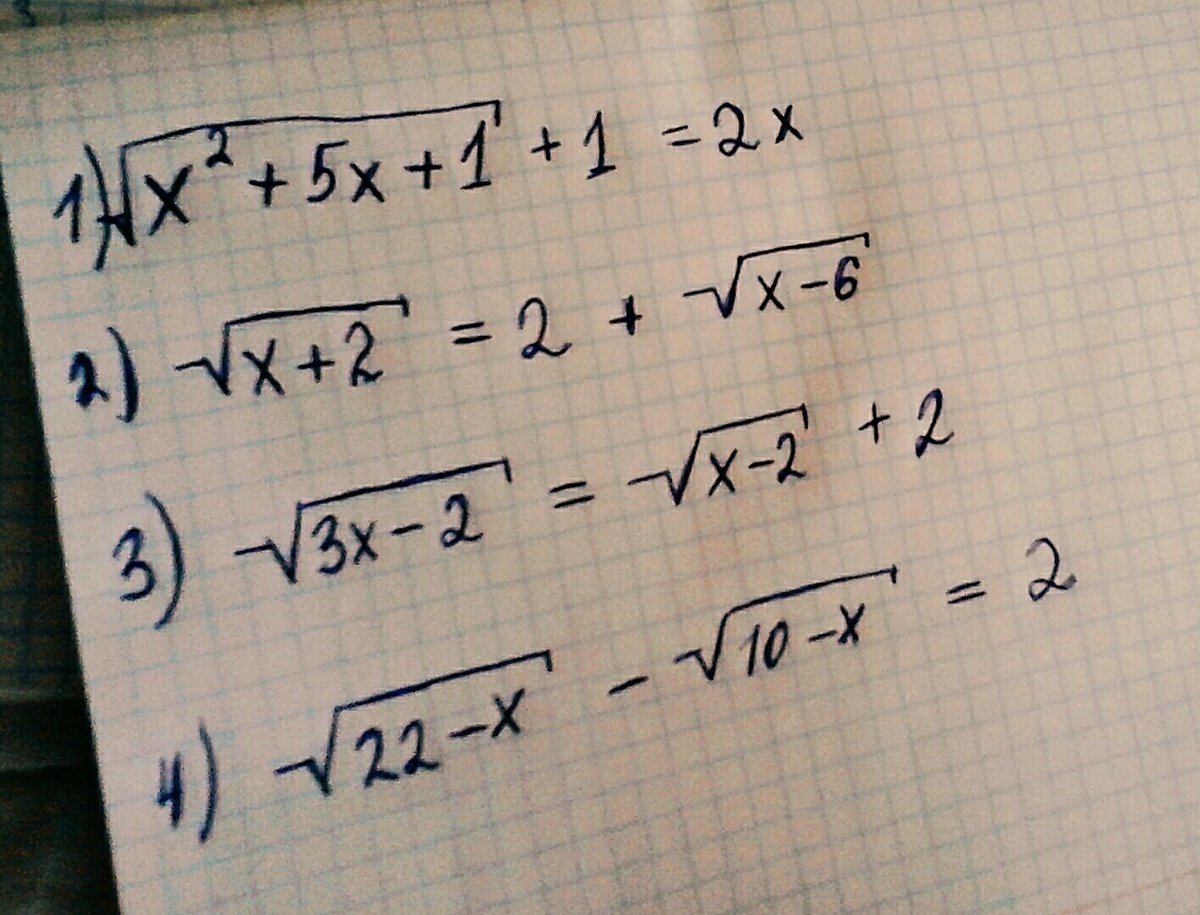 1) √(x² + 5x + 1) + 1 = 2x
2) √(x + 2) = 2 + √(x - 6)
3) √(3x - 2) = √(x - 2) + 2
4) √(22 - x) - √(10 - x) = 2